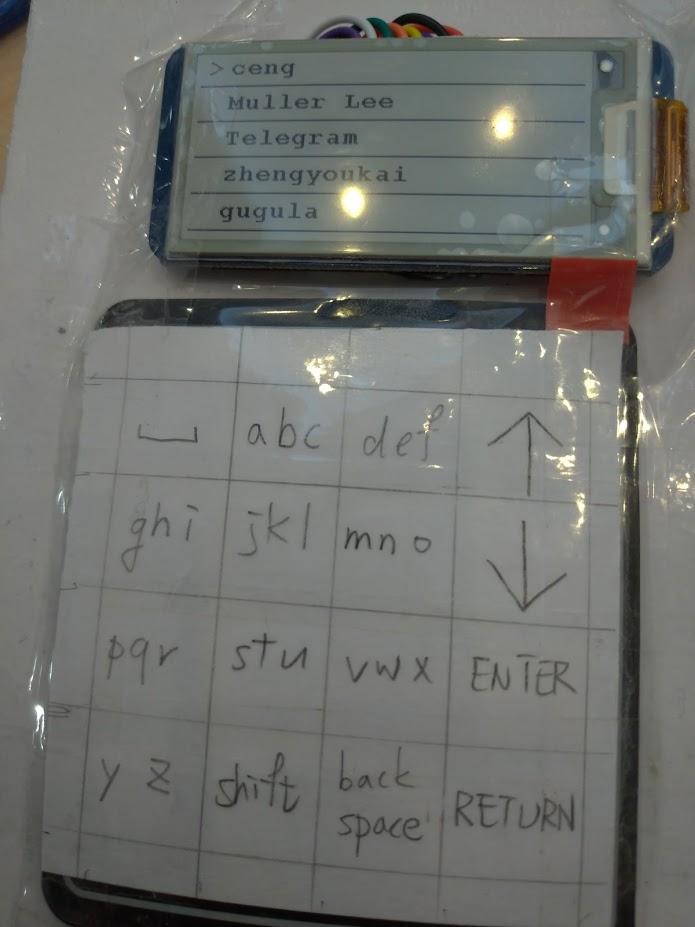 > ceng
Muller Lee
Telegram
zhengyoukai
gugula
abc def
ghi jkl mno
pqr stu vwx ENTER
y z shift back space RETURN